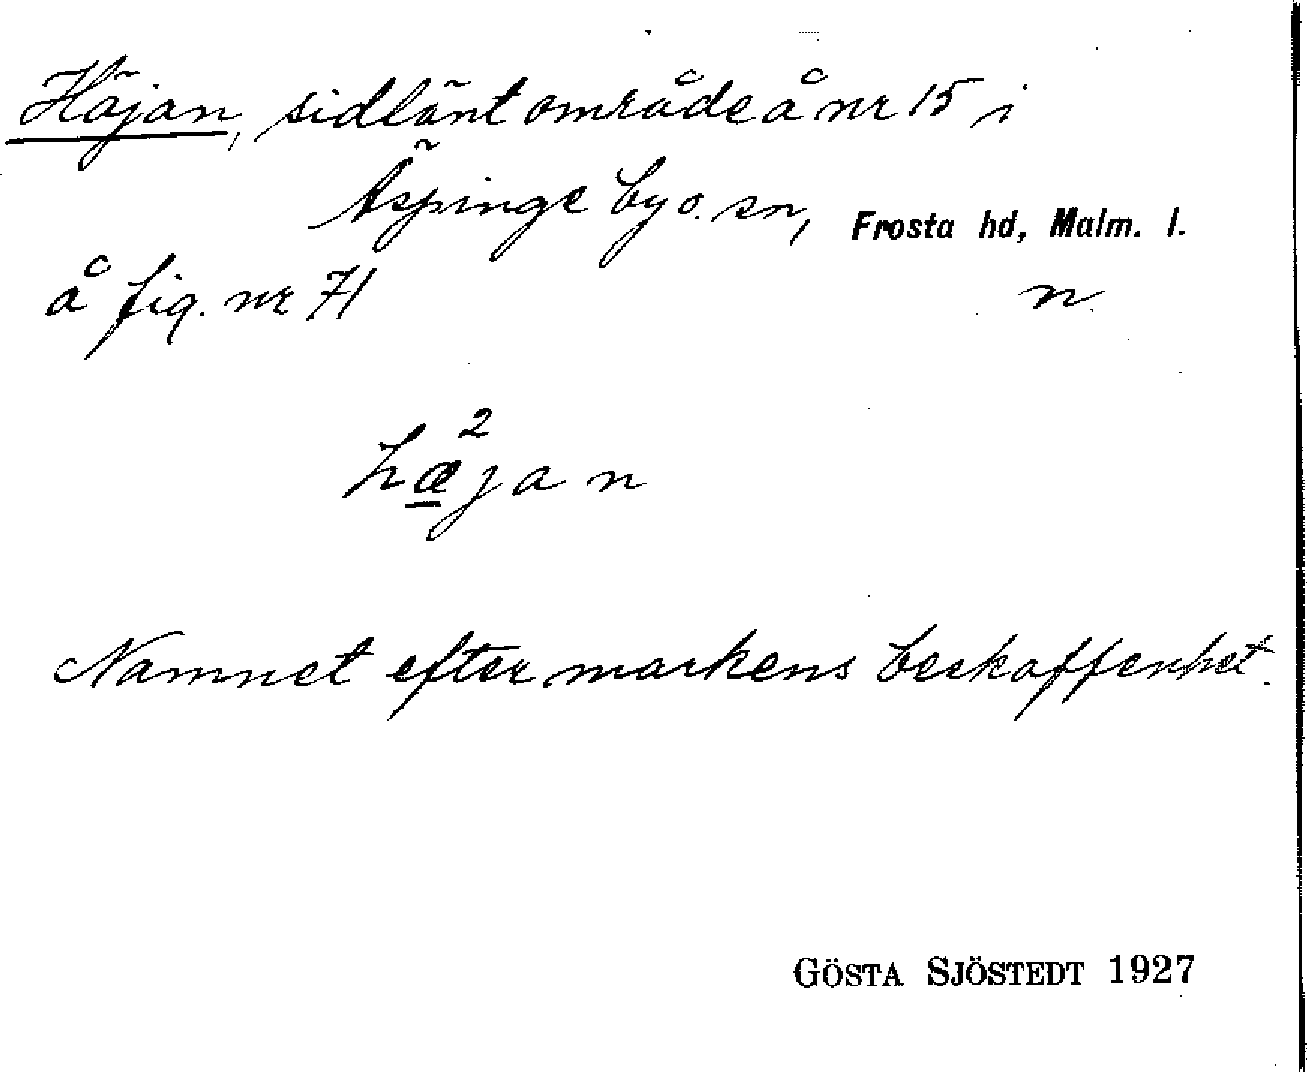 Häjan, sidlänt område å nr 15 i
Äspinge by o. sn, Frosta hd, Malm. l.
å fig. nr 71 n.
2
hæjan
Namnet efter markens beskaffenhet.
GÖSTA SJÖSTEDT 1927